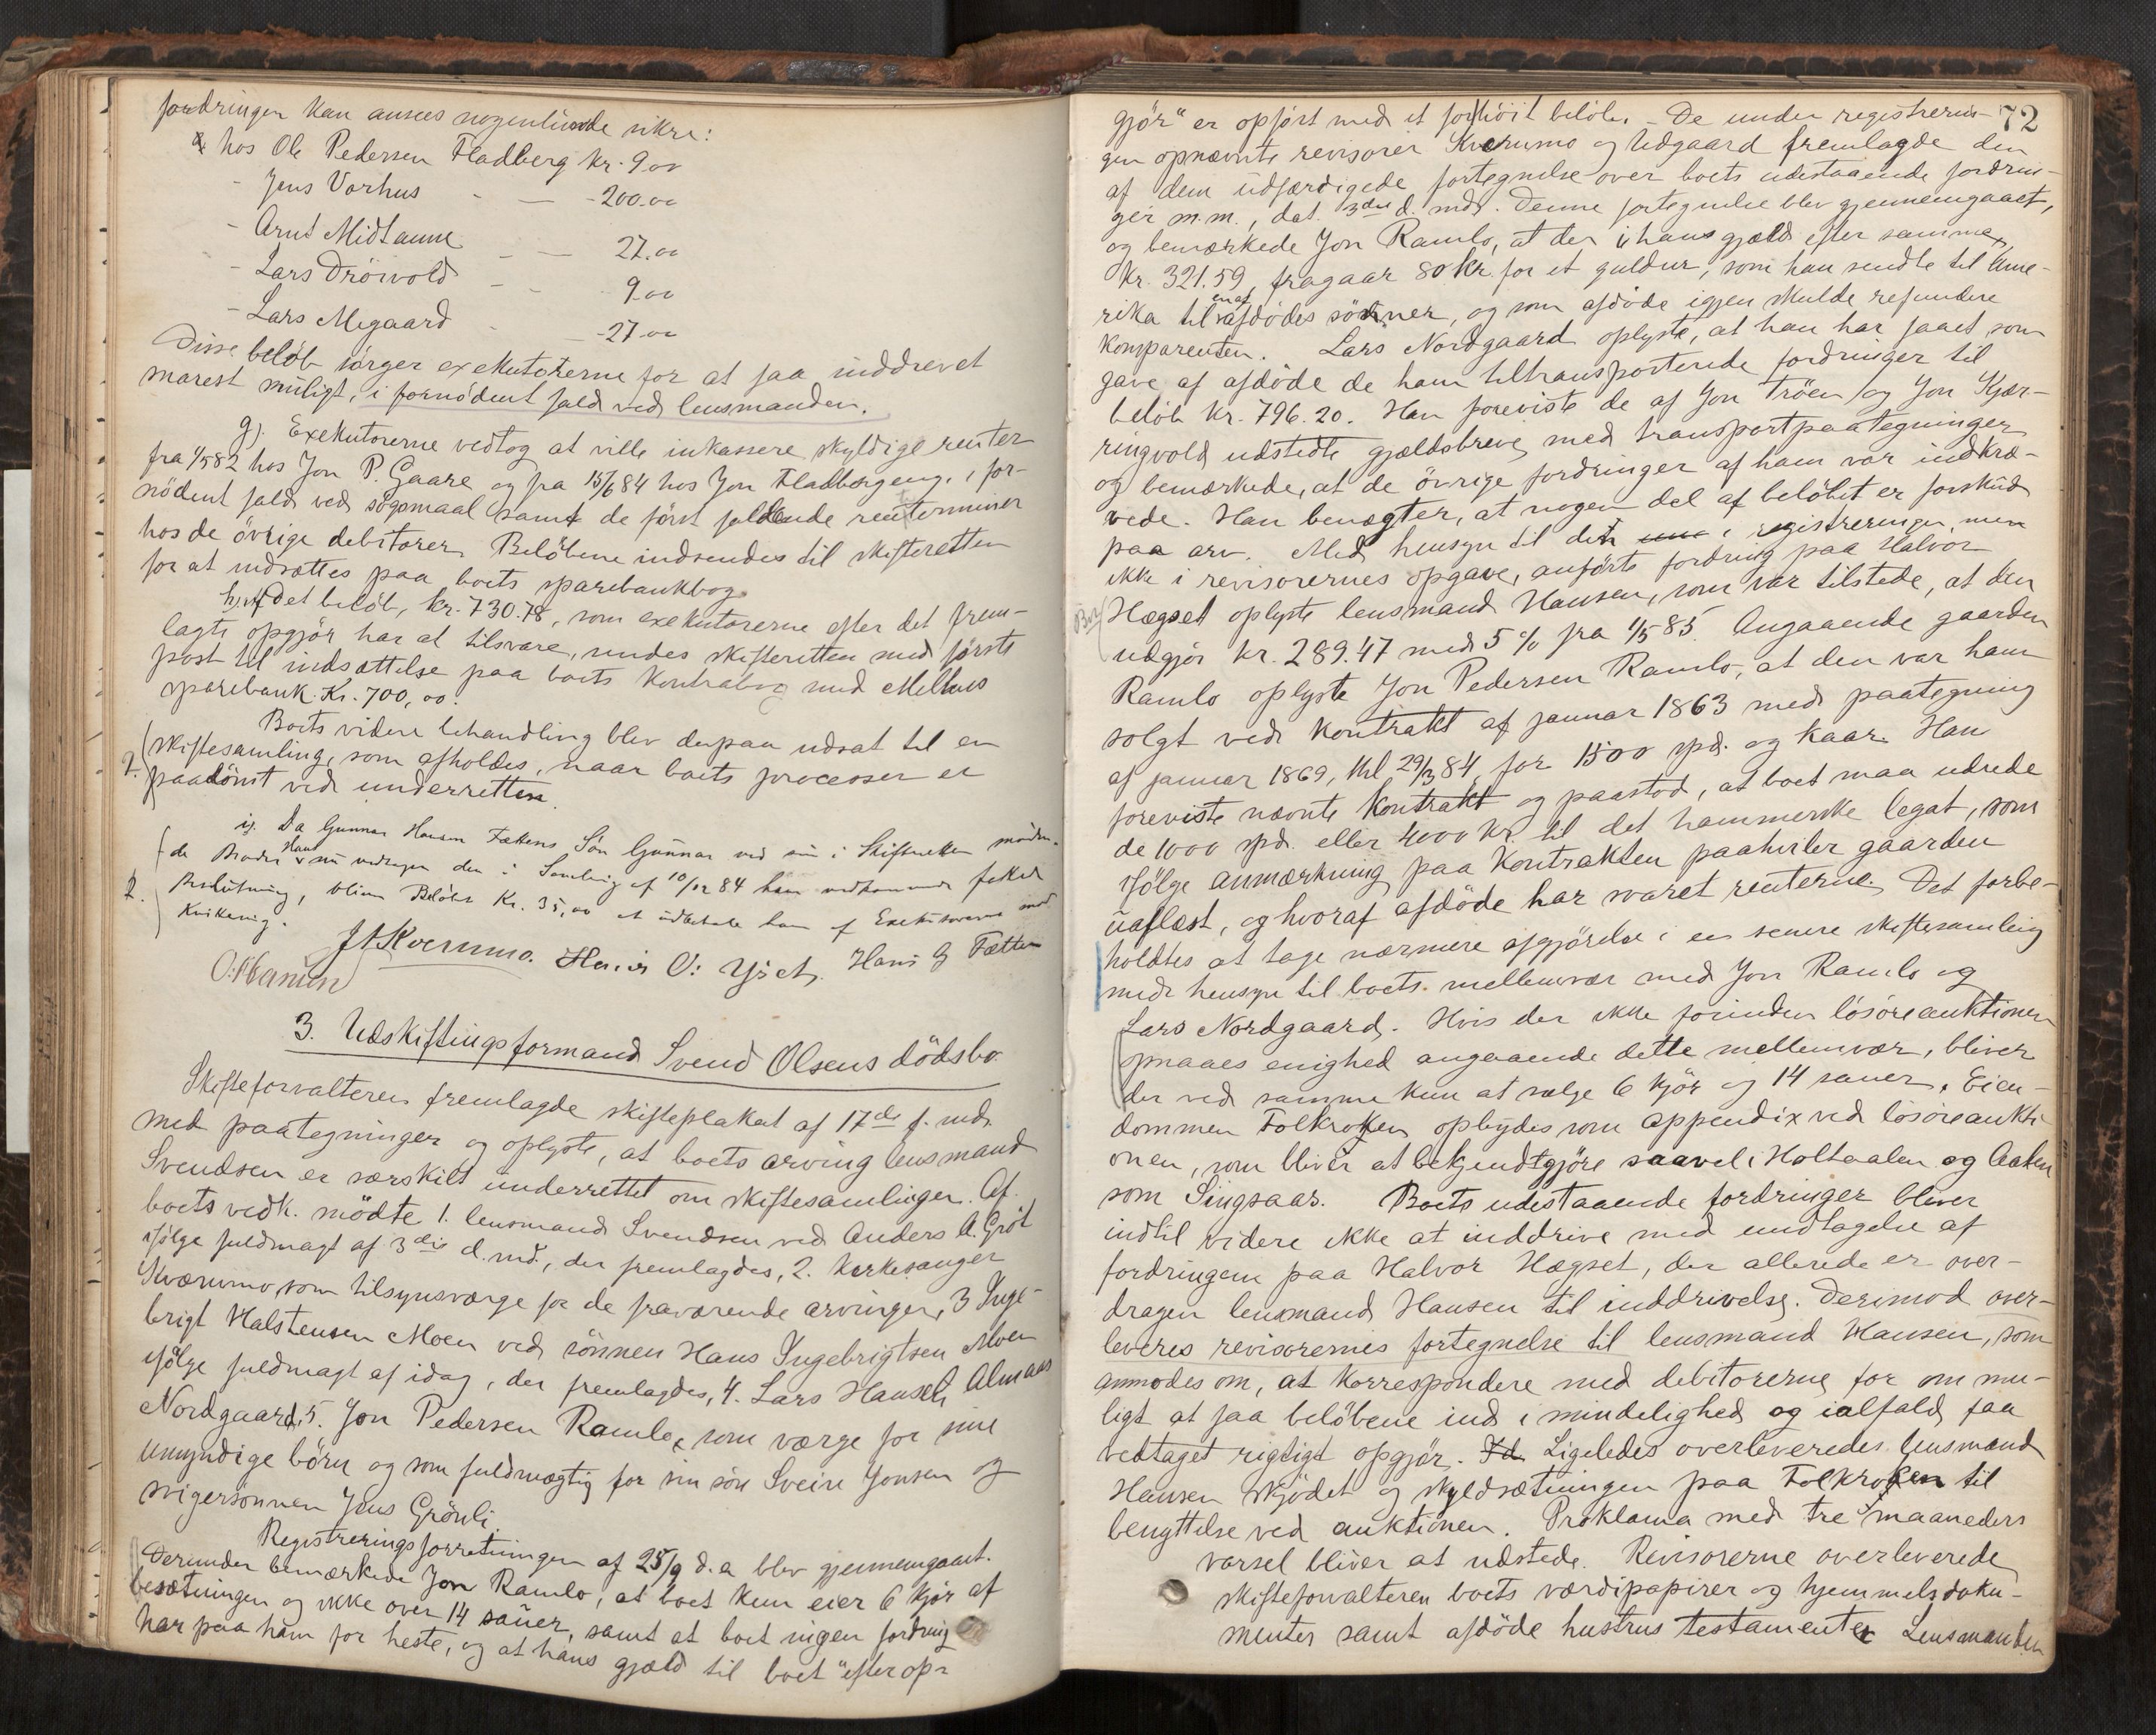 fordringer kan ansees nogenlunde sikre:
hos Ole Pedersen Fladberg kr. 9.00
- Jens Vorhus - — - 200.00
- Arnt Midtaune - — 27.00
- Lars Dröivold - - 9.00
- Lars Megaard - - 27.00
Disse belöb sörger exekutorerne for at faa inddrevet
snarest muligt, i fornödent fald ved lensmanden.
g). Exekutorerne vedtog at ville inkassere skyldige renter
fra 1/5 82 hos Jon P. Gaare og fra 15/6 84 hos Jon Fladbergeng, i for-
nödent fald ved sögsmaal samt de först faldende renterminer
hos de övrige debitorer. Belöbene indsendes til skifteretten
for at indsættes paa boets sparebankbog.
h). Af det belöb, kr. 730.78, som exekutorerne efter det frem-
lagte opgjör har at tilsvare, sendes skifteretten med förste
post til indsættelse paa boets kontrabog med Melhus
sparebank Kr. 700,00.
Boets videre behandling blev derpaa udsat til en
skiftesamling, som afholdes, naar boets processer er
paadömt ved underretten.
i). Da Gunnar Hansen Fættens Sön Gunnar ved sin i Skifteretten möden-
de Broder Hans nu vedtager den i Samling af 10/12 84 ham vedkommende fattede
Beslutning, bliver Belöbet Kr. 35,00 at udbetale ham af Exekutorerne mod
Kvittering.
J A Kværnmo. Hans O: Yset. Hans G Fætten
O. Hansen
3. Udskiftingsformand Svend Olsens dödsbo.
Skifteforvalteren fremlagde skifteplakat af 17de f. md.
med paategninger og oplyste, at boets arving lensmand
Svendsen er særskilt underrettet om skiftesamlingen. Af
boets vedk. mödte 1. lensmand Svendsen ved Anders A. Gröt
ifölge fuldmagt af 3die d. md., der fremlagdes, 2. kirkesanger
Kværnmo, som tilsynsværge for de fraværende arvinger, 3 Inge-
brigt Halstensen Moen ved sönnen Hans Ingebrigtsen Moen
ifölge fuldmagt af idag, der fremlagdes, 4. Lars Hansen Almaas
Nordgaard, 5. Jon Pedersen Ramlo, som værge for sine
umyndige börn og som fuldmægtig for sin sön Svein Jonsen og
svigersönnen Jens Grönli.
Registreringsforretningen af 25/9 d. a blev gjennemgaaet.
Derunder bemærkede Jon Ramlo, at boet kun eier 6 kjör af
besætningen og ikke over 14 sauer, samt at boet ingen fordring
har paa ham for heste, og at hans gjæld til boet "efter op-
72
gjör" er opfört med et for höit belöb. - De under registrerin-
gen opnævnte revisorer Kværnmo og Udgaard fremlagde den
af dem udfærdigede fortegnelse over boets udestaaende fordrin-
ger m.m., dat. 3die d. md. Denne fortegnelse blev gjennemgaaet,
og bemærkede Jon Ramlo, at der i hans gjæld efter samme,
kr. 321.59, fragaar 80 kr. for et guldur, som han sendte til Ame-
rika til en af afdödes sönner, og som afdöde igjen skulde refundere
komparenten. Lars Nordgaard oplyste, at han har faaet som
gave af afdöde de ham tiltransporterede fordringer til
belöb kr. 796.20. Han foreviste de af Jon Tröen og Jon Kjær-
ringvold udstedte gjældsbreve med transportpaategninger
og bemærkede, at de övrige fordringer af ham var indkræ-
vede. Han benægter, at nogen del af belöbet er forskud
paa arv. Med hensyn til den i registreringen, men
ikke i revisorernes opgave, anförte fordring paa Halvor
Hægset oplyste lensmand Hansen, som var tilstede, at den
udgjör kr. 289.47 med 5 % fra 1/5 85. Angaaende gaarden
Ramlo oplyste Jon Pedersen Ramlo, at den var ham
solgt ved kontrakt af januar 1863 med paategning
af januar 1869, thl. 29/3 84, for 1500 spd. og kaar. Han
foreviste nævnte kontrakt og paastod, at boet maa udrede
de 1000 spd. eller 4000 kr. til det hammerske legat, som
ifölge anmærkning paa kontrakten paahviler gaarden
uaflöst, og hvoraf afdöde har svaret renterne. Det forbe-
holdtes at tage nærmere afgjörelse i en senere skiftesamling
med hensyn til boets mellemvær med Jon Ramlo og
Lars Nordgaard. Hvis der ikke forinden lösöreauktionen
opnaaes enighed angaaende dette mellemvær, bliver
der ved samme kun at sælge 6 kjör og 14 sauer. Eien-
dommen Folkroken opbydes som appendix ved lösöreaukti-
onen, som bliver at bekjendtgjöre saavel i Holtaalen og Aalen
som Singsaas. Boets udestaaende fordringer bliver
indtil videre ikke at inddrive med undtagelse af
fordringen paa Halvor Hægset, der allerede er over-
dragen lensmand Hansen til inddrivelse. Derimod over-
leveres revisorernes fortegnelse til lensmand Hansen, som
anmodes om, at korrespondere med debitorerne for om mu-
ligt at faa belöbene ind i mindelighed og ialfald faa
vedtaget rigtigt opgjör. Ligeledes overleveredes lensmand
Hansen skjödet og skyldsætningen paa Folkroken til
benyttelse ved auktionen. Proklama med tre maaneders
varsel bliver at udstede. Revisorerne overleverede
skifteforvalteren boets værdipapirer og hjemmelsdoku-
menter samt afdöde hustrus testamente. Lensmanden